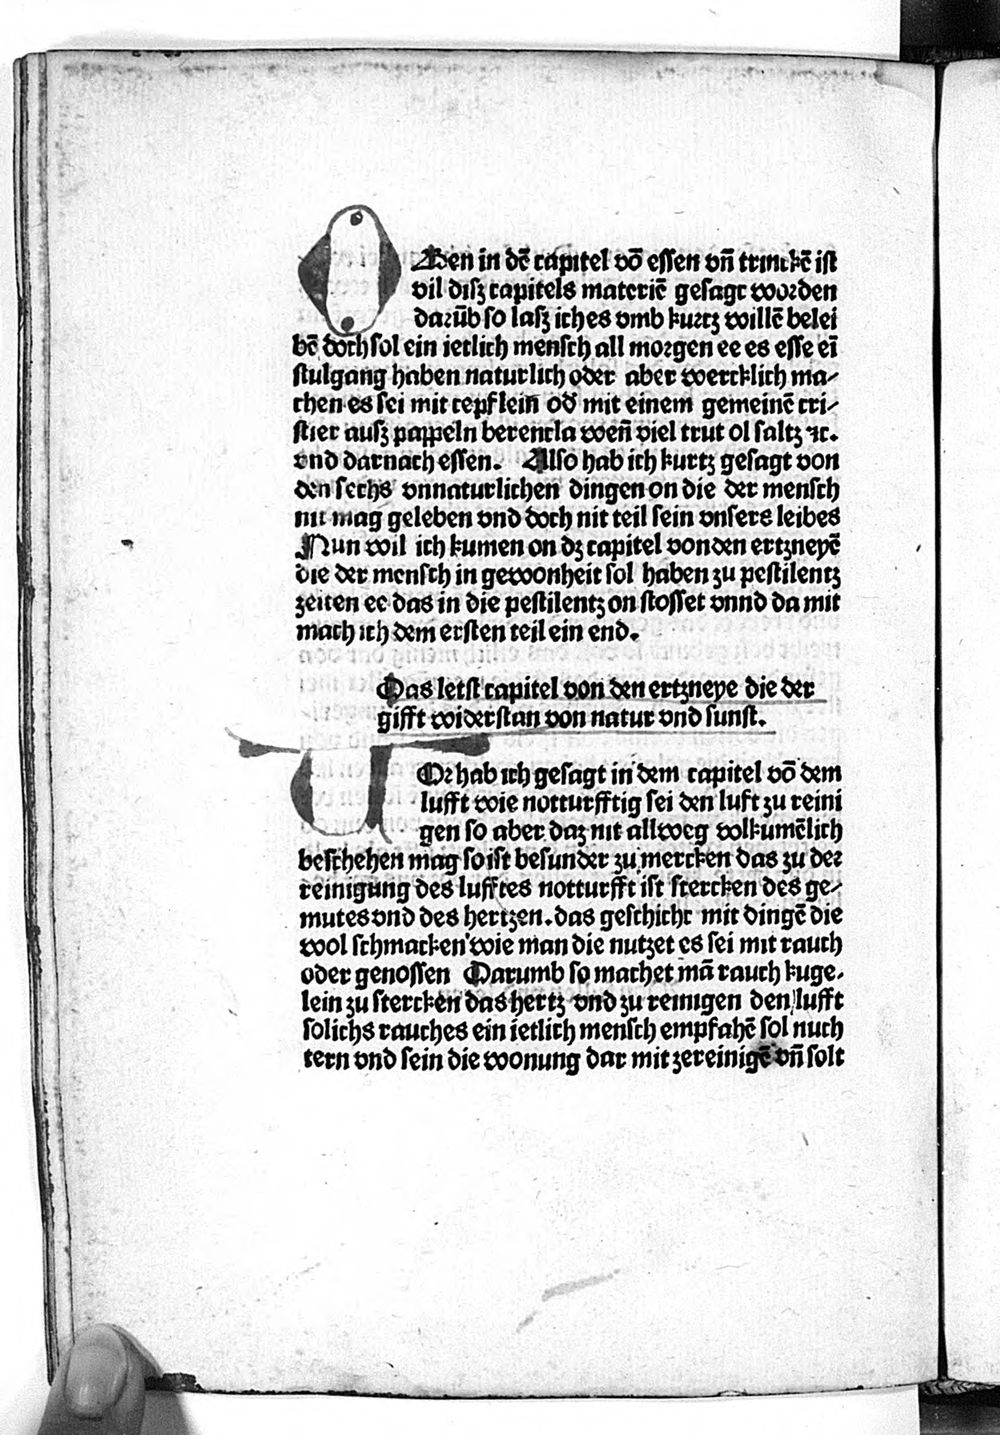 OBen in dē capitel vō essen vn̄ trinckē ist
vil disz capitels materiē gesagt worden
darūb so lasz ich es vmb kurtz willē belei
bē doch sol ein ietlich mensch all morgen ee es esse eī
stulgang haben naturlich oder aber wercklich ma⸗
chen es sei mit zepflein̄ od' mit einem gemeinē cri⸗
stier ausz pappeln berencla wen̄ viel trut ol saltz ⁊c.
vnd darnach essen. Also hab ich kurtz gesagt von
den sechs vnnaturlichen dingen on die der mensch
nit mag geleben vnd doch nit teil sein vnsers leibes
Nun wil ich kumen on dz capitel von den ertzneyē
die der mensch in gewonheit sol haben zu pestilentz
zeiten ee das in die pestilentz on stosset vnnd da mit
mach ich dem ersten teil ein end.
Das letst capitel von den ertzneye die der
gifft widerstan von natur vnd sunst.
VOr hab ich gesagt in dem capitel vō dem
lufft wie notturfftig sei den luft zu reini
gen so aber daz nit allweg volkumēlich
beschehen mag so ist besunder zu mercken das zu der
reinigung des lufftes notturfft ist stercken des ge⸗
mutes vnd des hertzen. das geschicht mit dingē die
wol schmacken wie man die nutzet es sei mit rauch
oder genossen Darumb so machet mā rauch kuge⸗
lein zu stercken das hertz vnd zu reinigen den lufft
solichs rauches ein ietlich mensch empfahē sol nuch
tern vnd sein die wonung dar mit zereinigē vn̄ solt